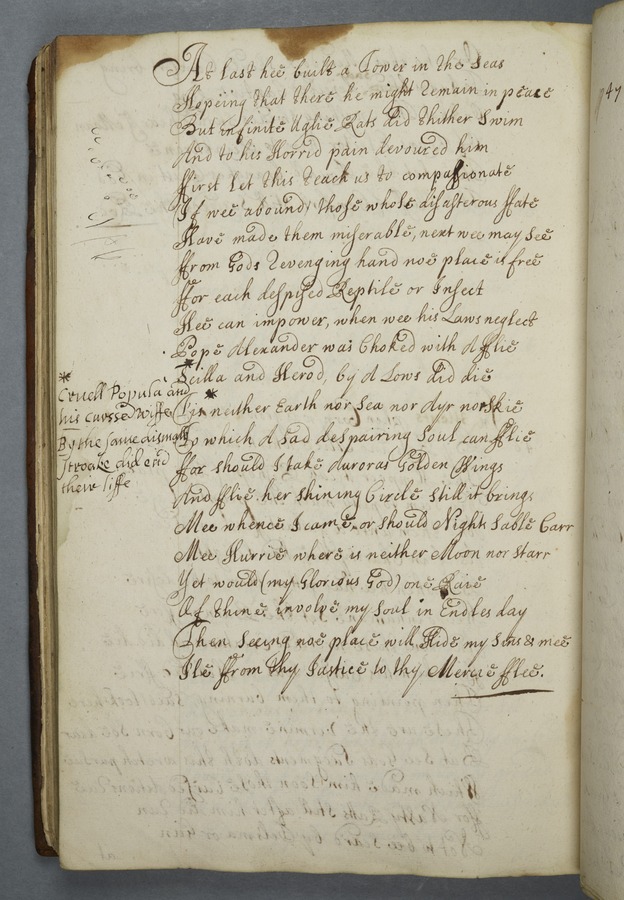 At last hee built a Tower in the Seas
Hopeing that there he might Remain in peace
But infinite Uglie Rats did thither Swim
And to his Horrid pain devoured him
ffirst let this teach us to compassionate
If wee abound, those whose disasterous ffate
Have made them miserable, next wee may See
ffrom Gods Revenging hand noe place is free
ffor each despised Reptile or Insect
Hee can impower, when wee his Laws neglect
Pope Alexander was Choked with A fflie
Scilla and Herod, by A Lows did die
*
Cruell Popula and
his curssed Wiffe
By the same dismall
stroake did end
theire liffe
*
Tis neither Earth nor Sea nor Ayr nor Skie
To which A Sad despairing Soul can fflie
ffor should I take Auroras Golden Wings
And fflie her Shining Circle Still it brings
Mee whence I came, or should Nights Sable Carr
Mee Hurrie where is neither Moon nor Starr
Yet would (my Glorious God) one Raie
Of thine, involve my Soul in Endles day
Then Seeing noe place will Hide my Sins & mee
Ile ffrom thy Justice to thy Mercie fflee.
47